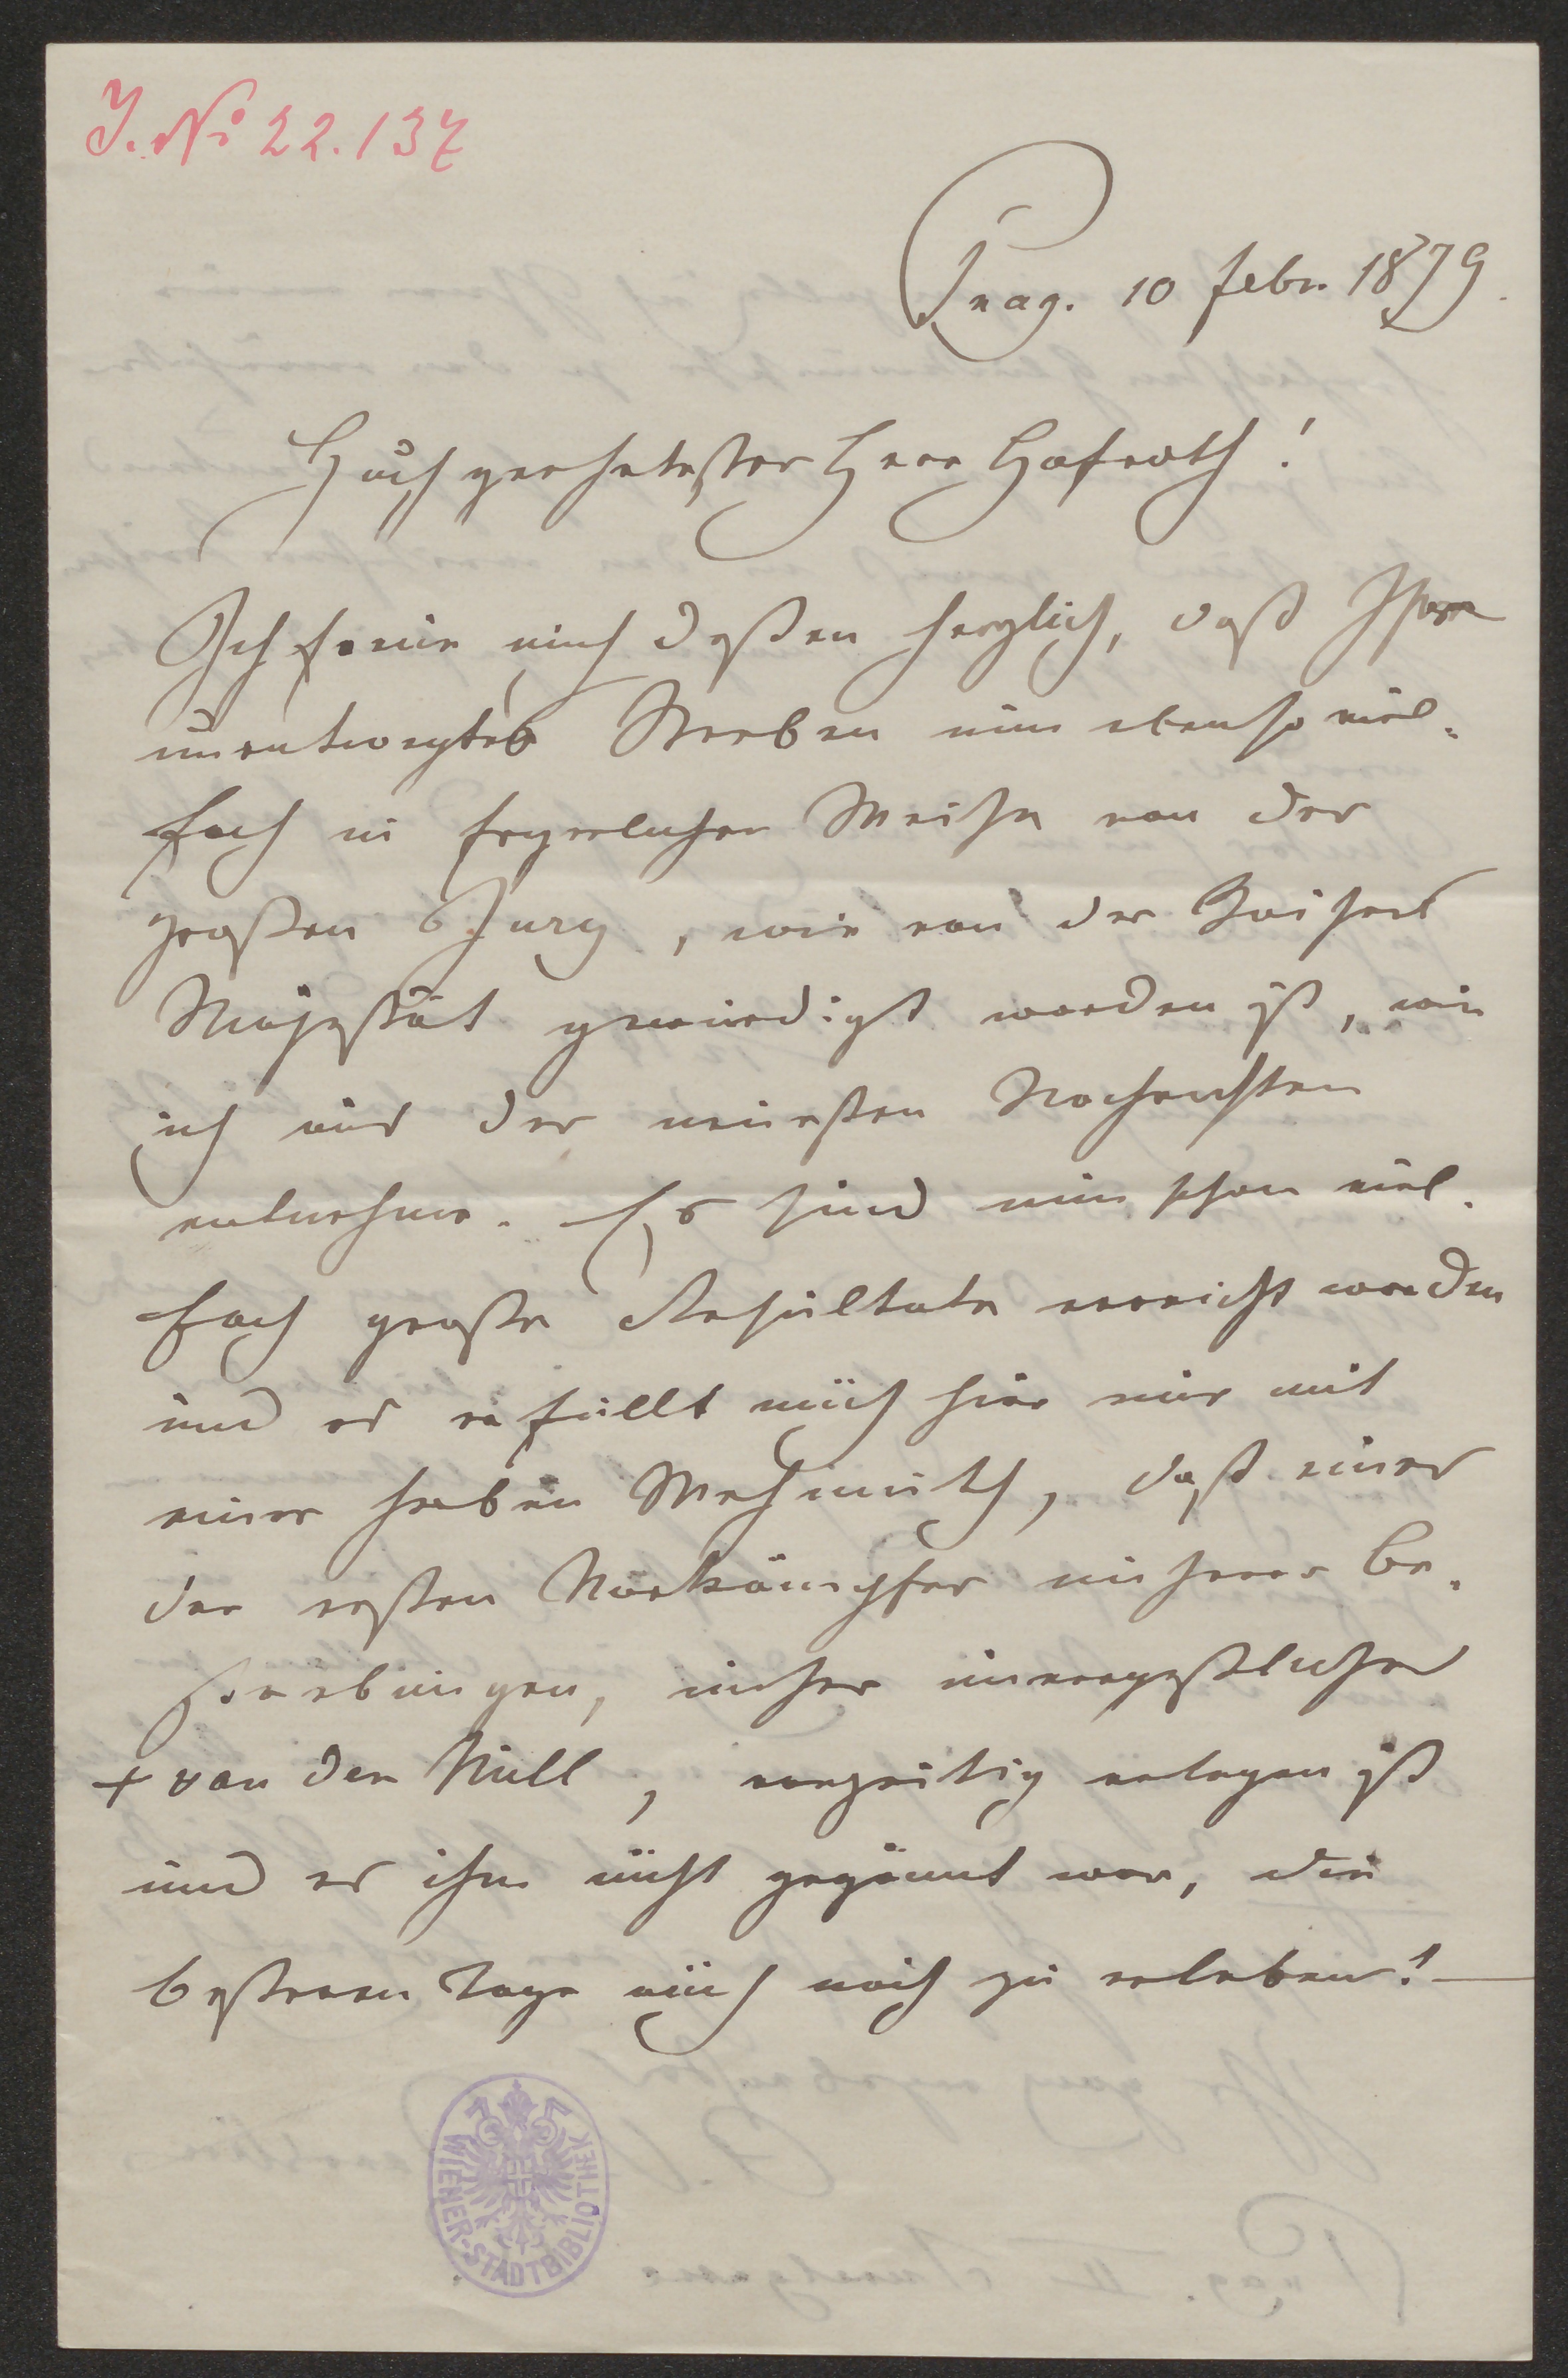 J. No 22.137
Prag. 10 Febr. 1879.
Hochgeehrtester Herr Hofrath!
Ich freue mich deßen herzlich, daß Ihr
unentwegtes Streben nun ebenso viel-
fach in feyerlicher Weise von der
großen Jury, wie von der Kaiserl
Majestät gewürdigt worden ist, wie
ich aus der neuesten Nachrichten
entnehme. Es sind nun schon viel-
fach große Resultate erreicht worden
und es erfüllt mich hier nur mit
einer herben Wehmuth, daß einer
der ersten Vorkämpfer unserer Be-
strebungen, unser unvergeßlicher
+ van der Nüll, vorzeitig erlegen ist
und es ihm nicht gegönnt war, die
besseren Tage auch noch zu erleben! —
WIENER-STADTBIBLIOTHEK